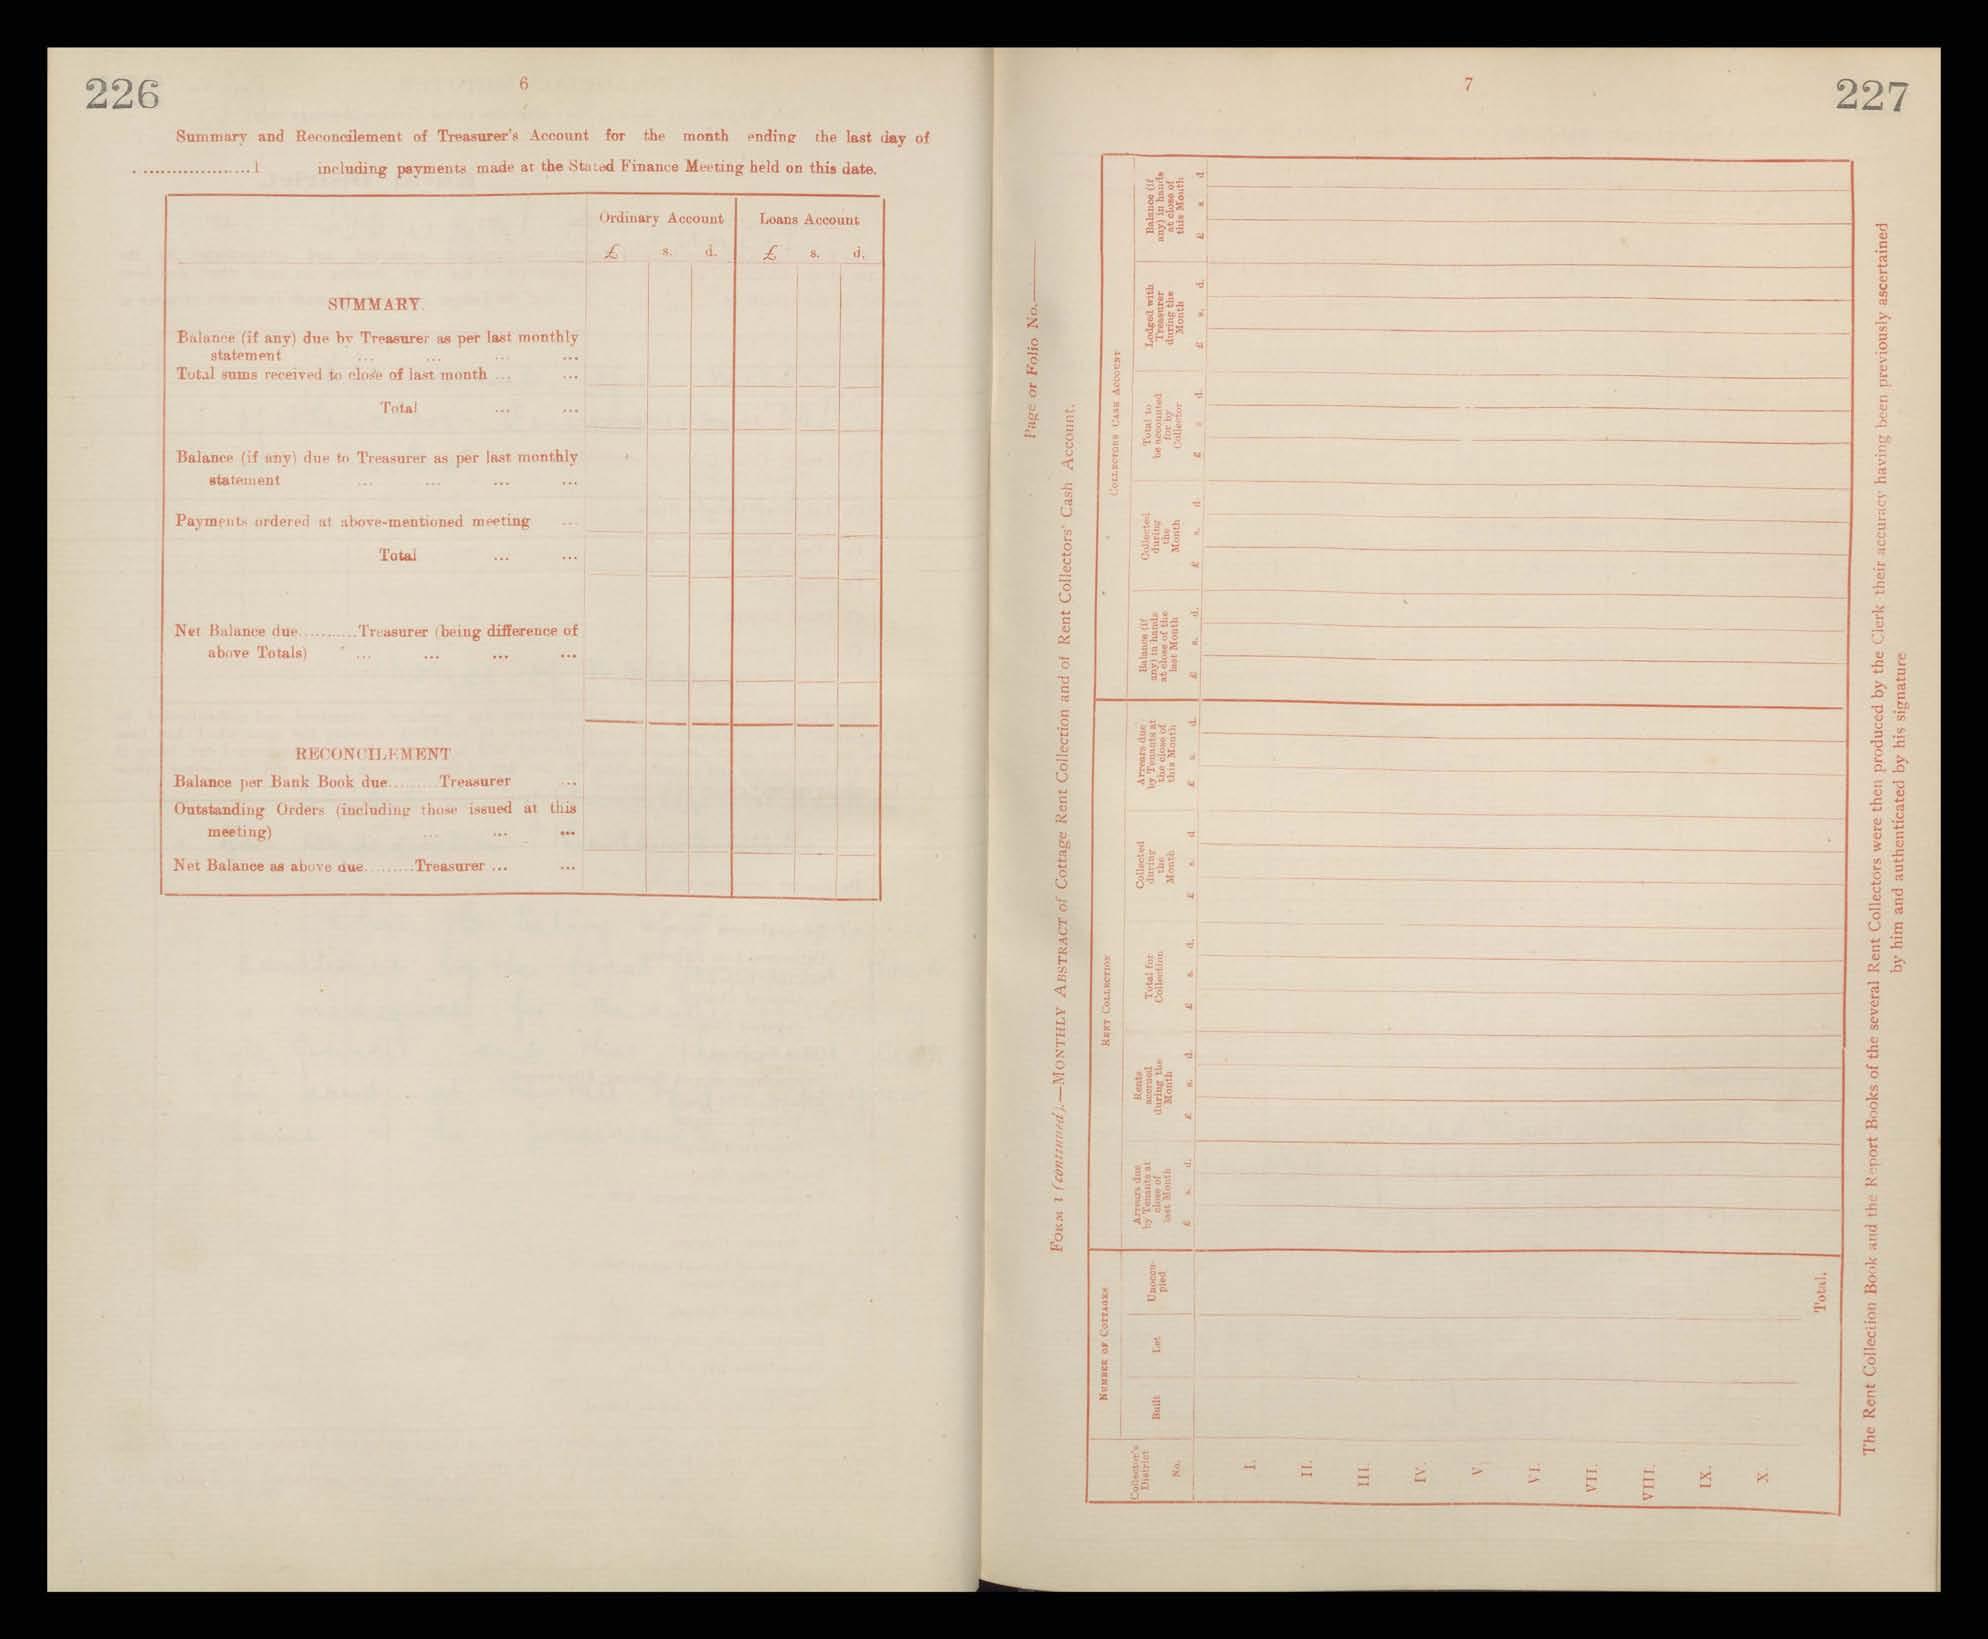 226
6
Summary and Reconcilement of Treasurer's Account for the month ending the last day of
....................1 including payments made at the Stated Finance Meeting held on this date.
Ordinary Account Loans Account
£ s. d. £ s. d.
SUMMARY.
Balance (if any) due by Treasurer as per last monthly
statement ... ... ... ...
Total sums received to close of last month ... ...
Total ... ...
Balance (if any) due to Treasurer as per last monthly
statement ... ... ... ...
Payments ordered at above-mentioned meeting ...
Total ... ...
Net Balance due...........Treasurer (being difference of
above Totals) ... ... ... ...
RECONCILEMENT
Balance per Bank Book due.........Treasurer ...
Outstanding Orders (including those issued at this
meeting) ... ... ...
Net Balance as above due.........Treasurer ... ...
7
227
Page or Folio No.
FORM 1 (continued).—MONTHLY ABSTRACT of Cottage Rent Collection and of Rent Collectors' Cash Account.
NUMBER OF COTTAGES RENT COLLECTION COLLECTORS CASH ACCOUNT
Collector's
District
No.
Built
Let
Unoccu-
pied
Arrears due
by Tenants at
close of
last Month
£ s. d.
Rents
accrued
during the
Month
£ s. d.
Total for
Collection
£ s. d.
Collected
during
the
Month
£ s. d
Arrears due
by Tenants at
the close of
this Month
£ s. d.
Balance (if
any) in hands
at close of the
last Month
£ s. d.
Collected
during
the
Month
£ s. d.
Total to
be accounted
for by
Collector
£ s. d.
Lodged with
Treasurer
during the
Month
£ s. d.
Balance (if
any) in hands
at close of
this Month
£ s. d.
I.
II.
III.
IV.
V.
VI.
VII.
VIII.
IX.
X.
Total.
The Rent Collection Book and the Report Books of the several Rent Collectors were then produced by the Clerk their accuracy having been previously ascertained
by him and authenticated by his signature